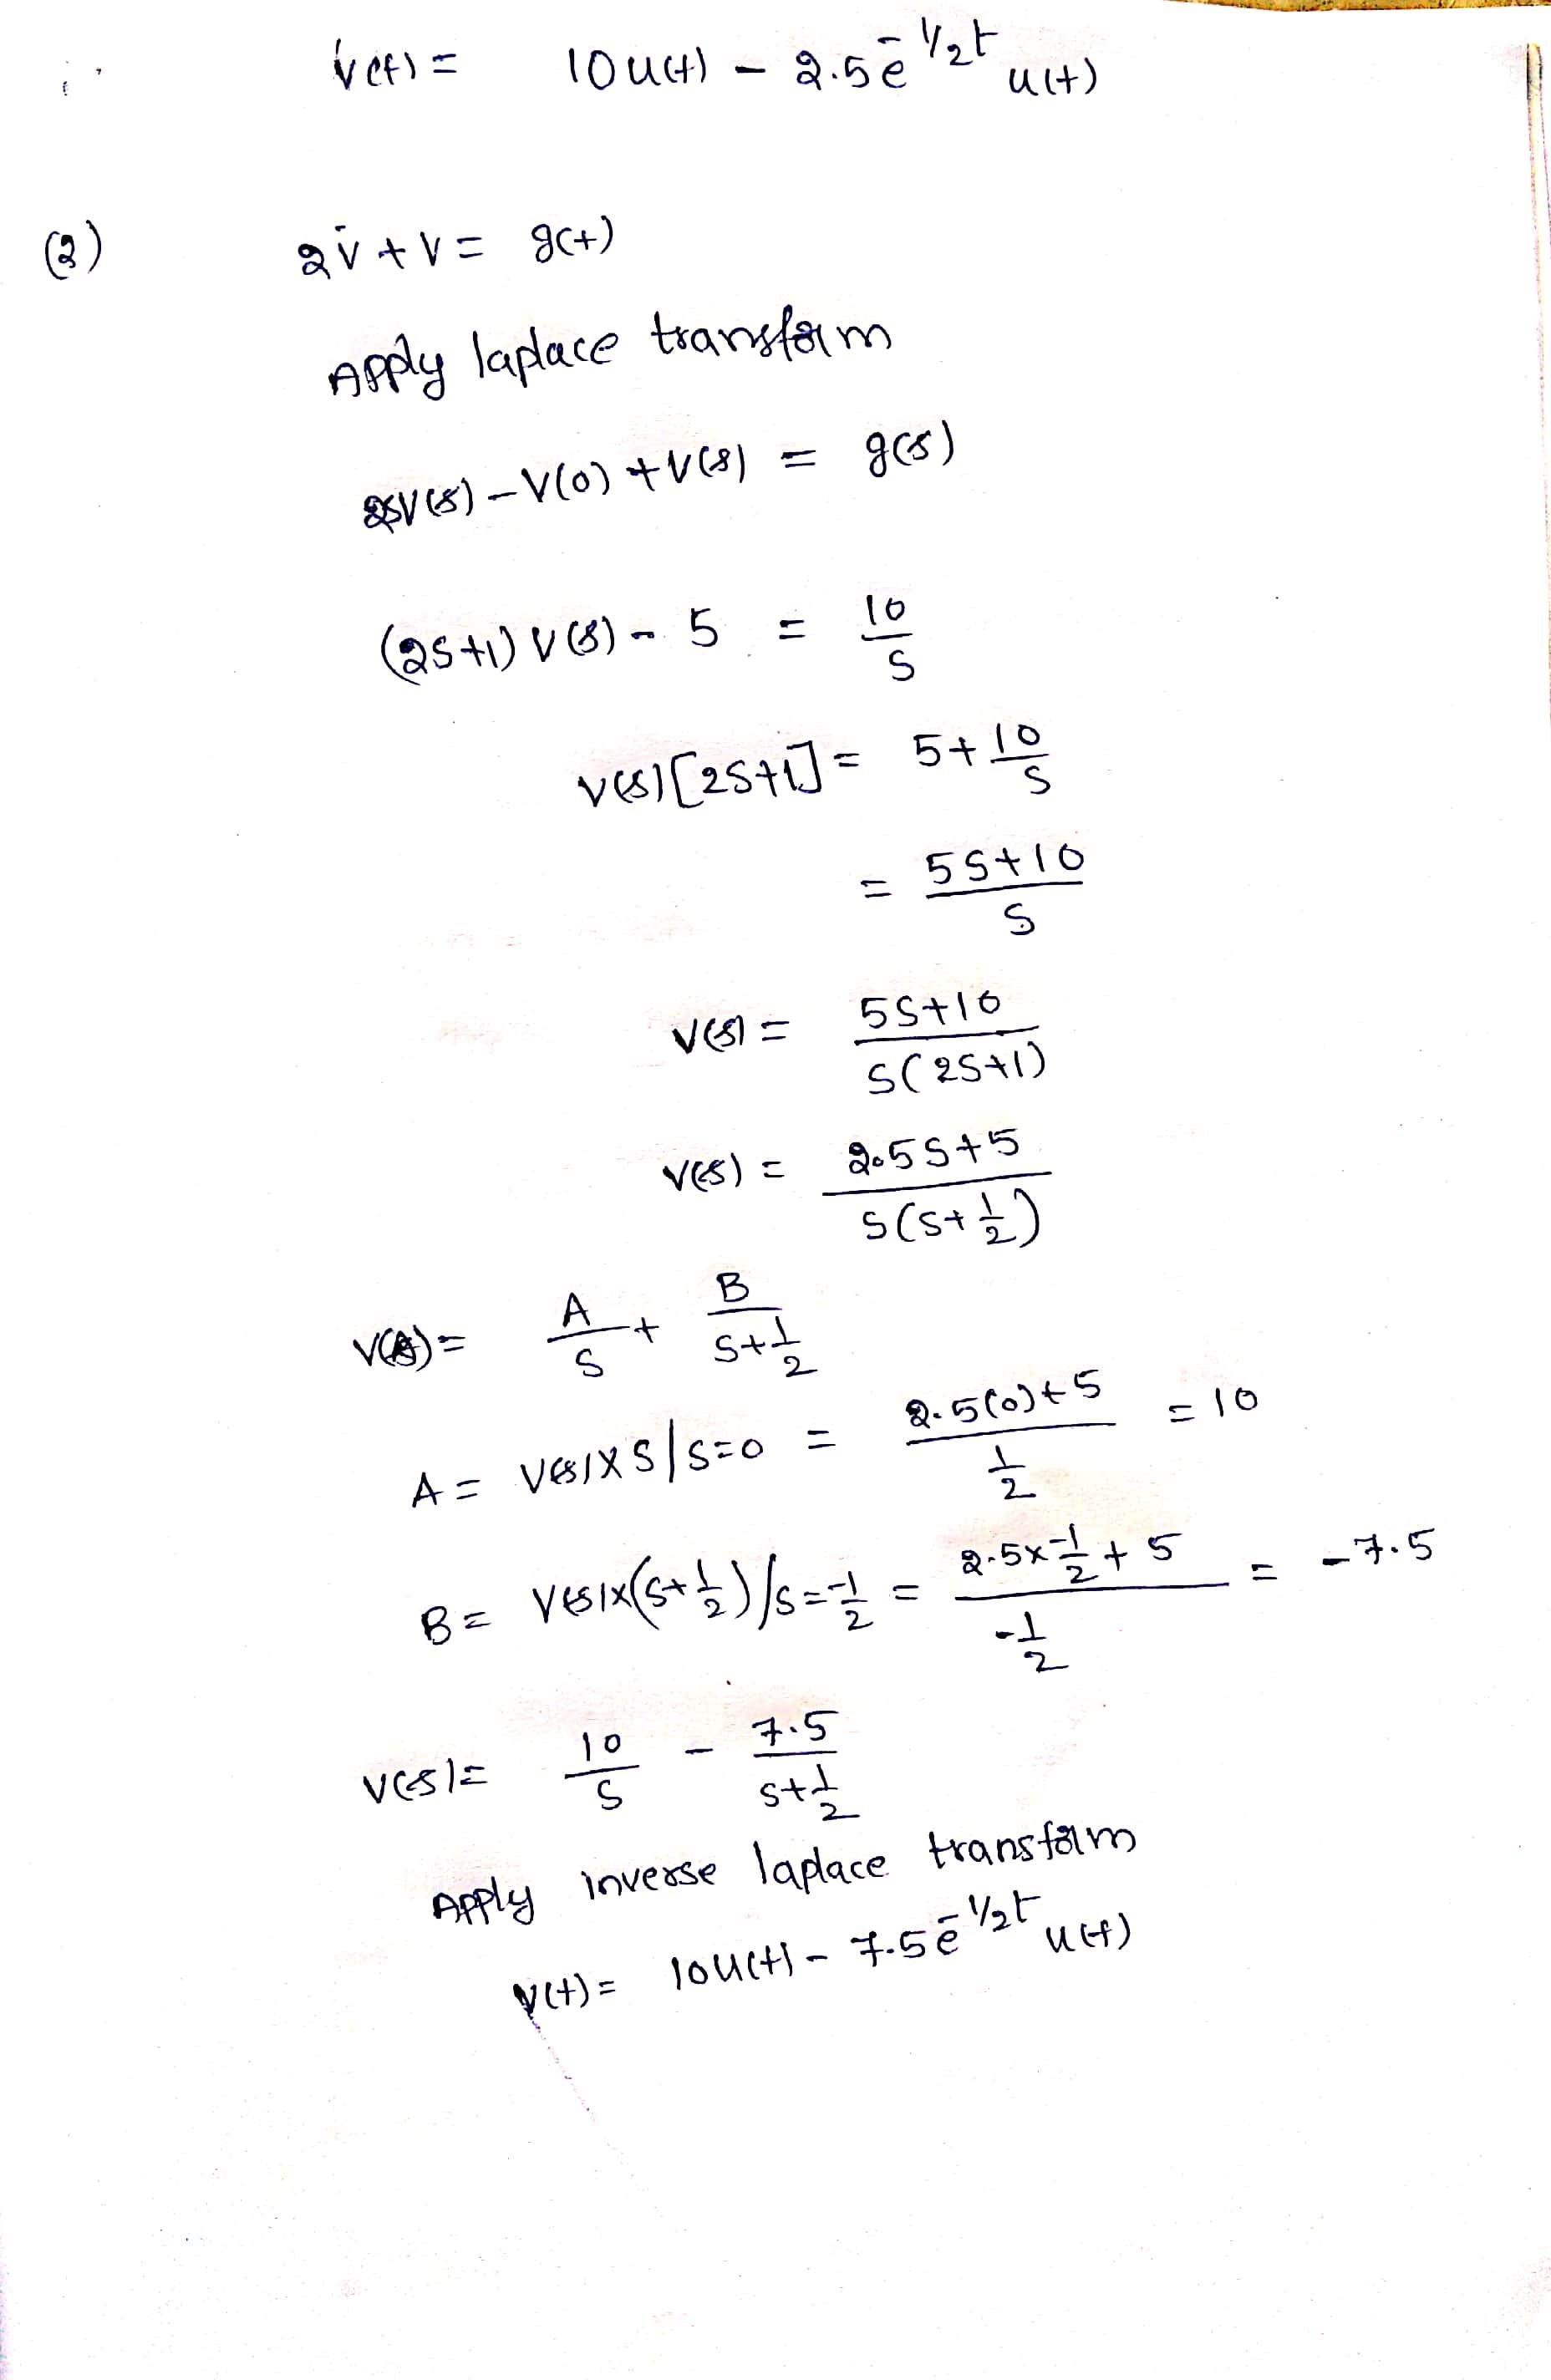 v(t) = 10u(t) - 2.5e^-1/2t u(t)
(2) 2v̇ + v = g(t)
Apply laplace transform
2sV(s) - V(0) + V(s) = g(s)
(2s+1) V(s) - 5 = 10/s
V(s)[2s+1] = 5 + 10/s
= 5s+10/s
V(s) = 5s+10/s(2s+1)
V(s) = 2.5s+5/s(s+1/2)
V(s) = A/s + B/s+1/2
A = V(s) x s | s=0 = 2.5(0)+5/1/2 = 10
B = V(s) x (s+1/2) / s=-1/2 = 2.5x-1/2+5/-1/2 = -7.5
V(s) = 10/s - 7.5/s+1/2
Apply inverse laplace transform
v(t) = 10u(t) - 7.5e^-1/2t u(t)